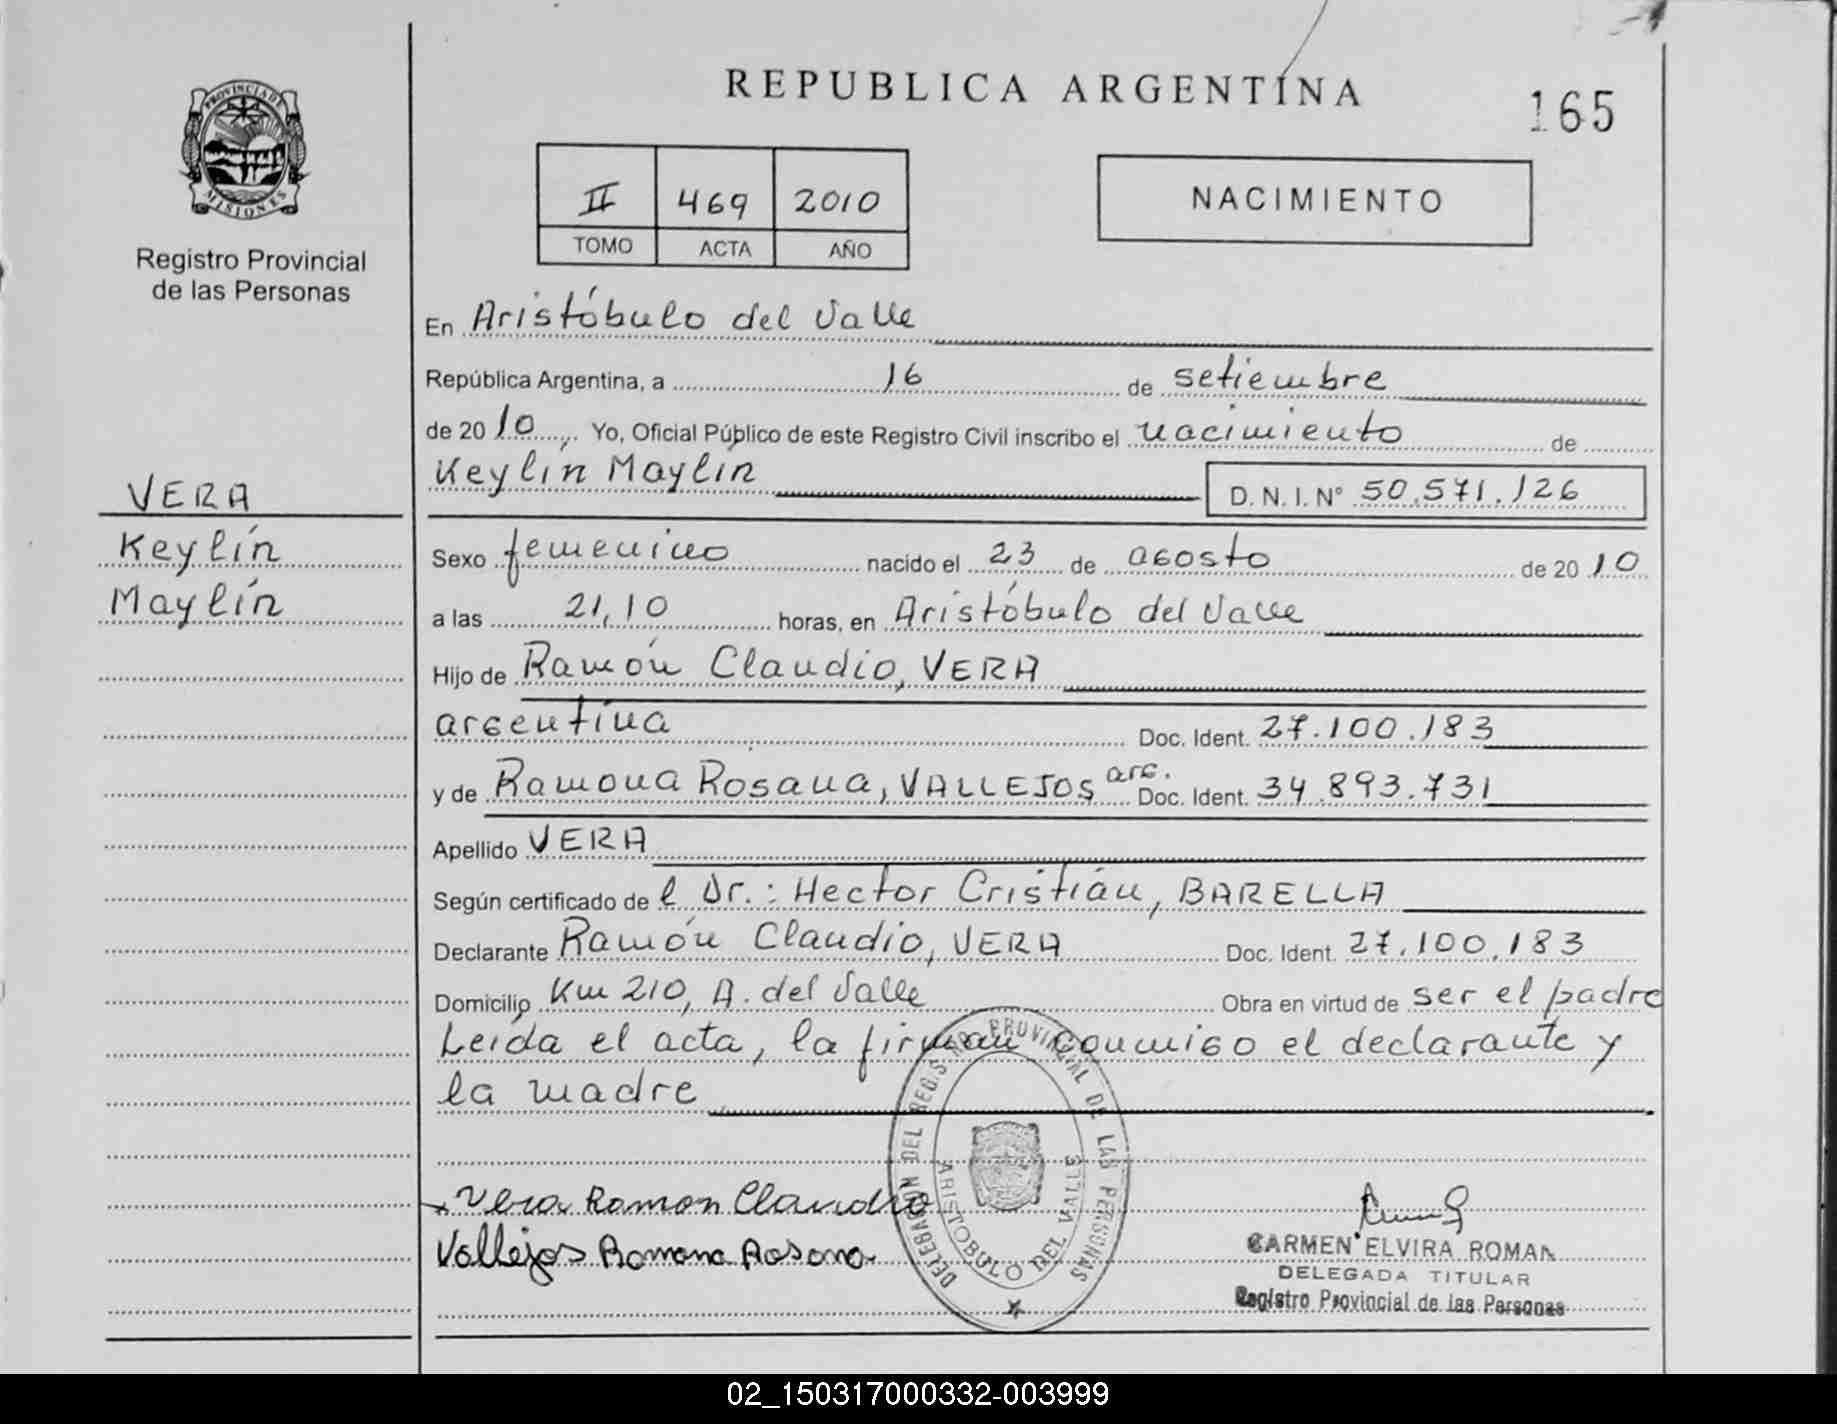 PROVINCIA DE
MISIONES
Registro Provincial
de las Personas
VERA
Keylín
Maylín
REPUBLICA ARGENTINA
165
II 469 2010
TOMO ACTA AÑO
NACIMIENTO
En Aristóbulo del Valle
República Argentina, a 16 de setiembre
de 2010, Yo, Oficial Público de este Registro Civil inscribo el nacimiento de
Keylín Maylín D. N. I. Nº 50.571.126
Sexo femenino nacido el 23 de agosto de 2010
a las 21,10 horas, en Aristóbulo del Valle
Hijo de Ramón Claudio, VERA
argentina Doc. Ident. 27.100.183
y de Ramona Rosana, VALLEJOS arg. Doc. Ident. 34.893.731
Apellido VERA
Según certificado de l Dr.: Hector Cristián, BARELLA
Declarante Ramón Claudio, VERA Doc. Ident. 27.100.183
Domicilio Km 210, A. del Valle Obra en virtud de ser el padre
Leída el acta, la firman conmigo el declarante y
la madre
DELEGACION DEL REGISTRO PROVINCIAL DE LAS PERSONAS
ARISTOBULO DEL VALLE
Vera Ramon Claudio
Vallejos Ramona Rosana
CARMEN ELVIRA ROMAN
DELEGADA TITULAR
Registro Provincial de las Personas
02_150317000332-003999